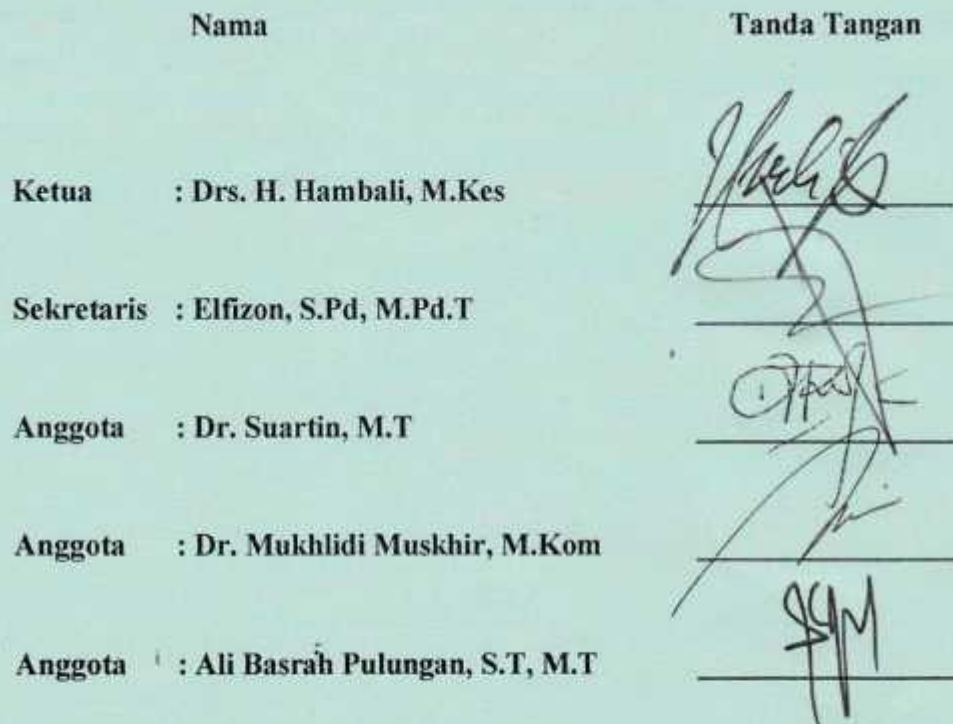 Nama Tanda Tangan
Ketua : Drs. H. Hambali, M.Kes
Sekretaris : Elfizon, S.Pd, M.Pd.T
Anggota : Dr. Suartin, M.T
Anggota : Dr. Mukhlidi Muskhir, M.Kom
Anggota : Ali Basrah Pulungan, S.T, M.T